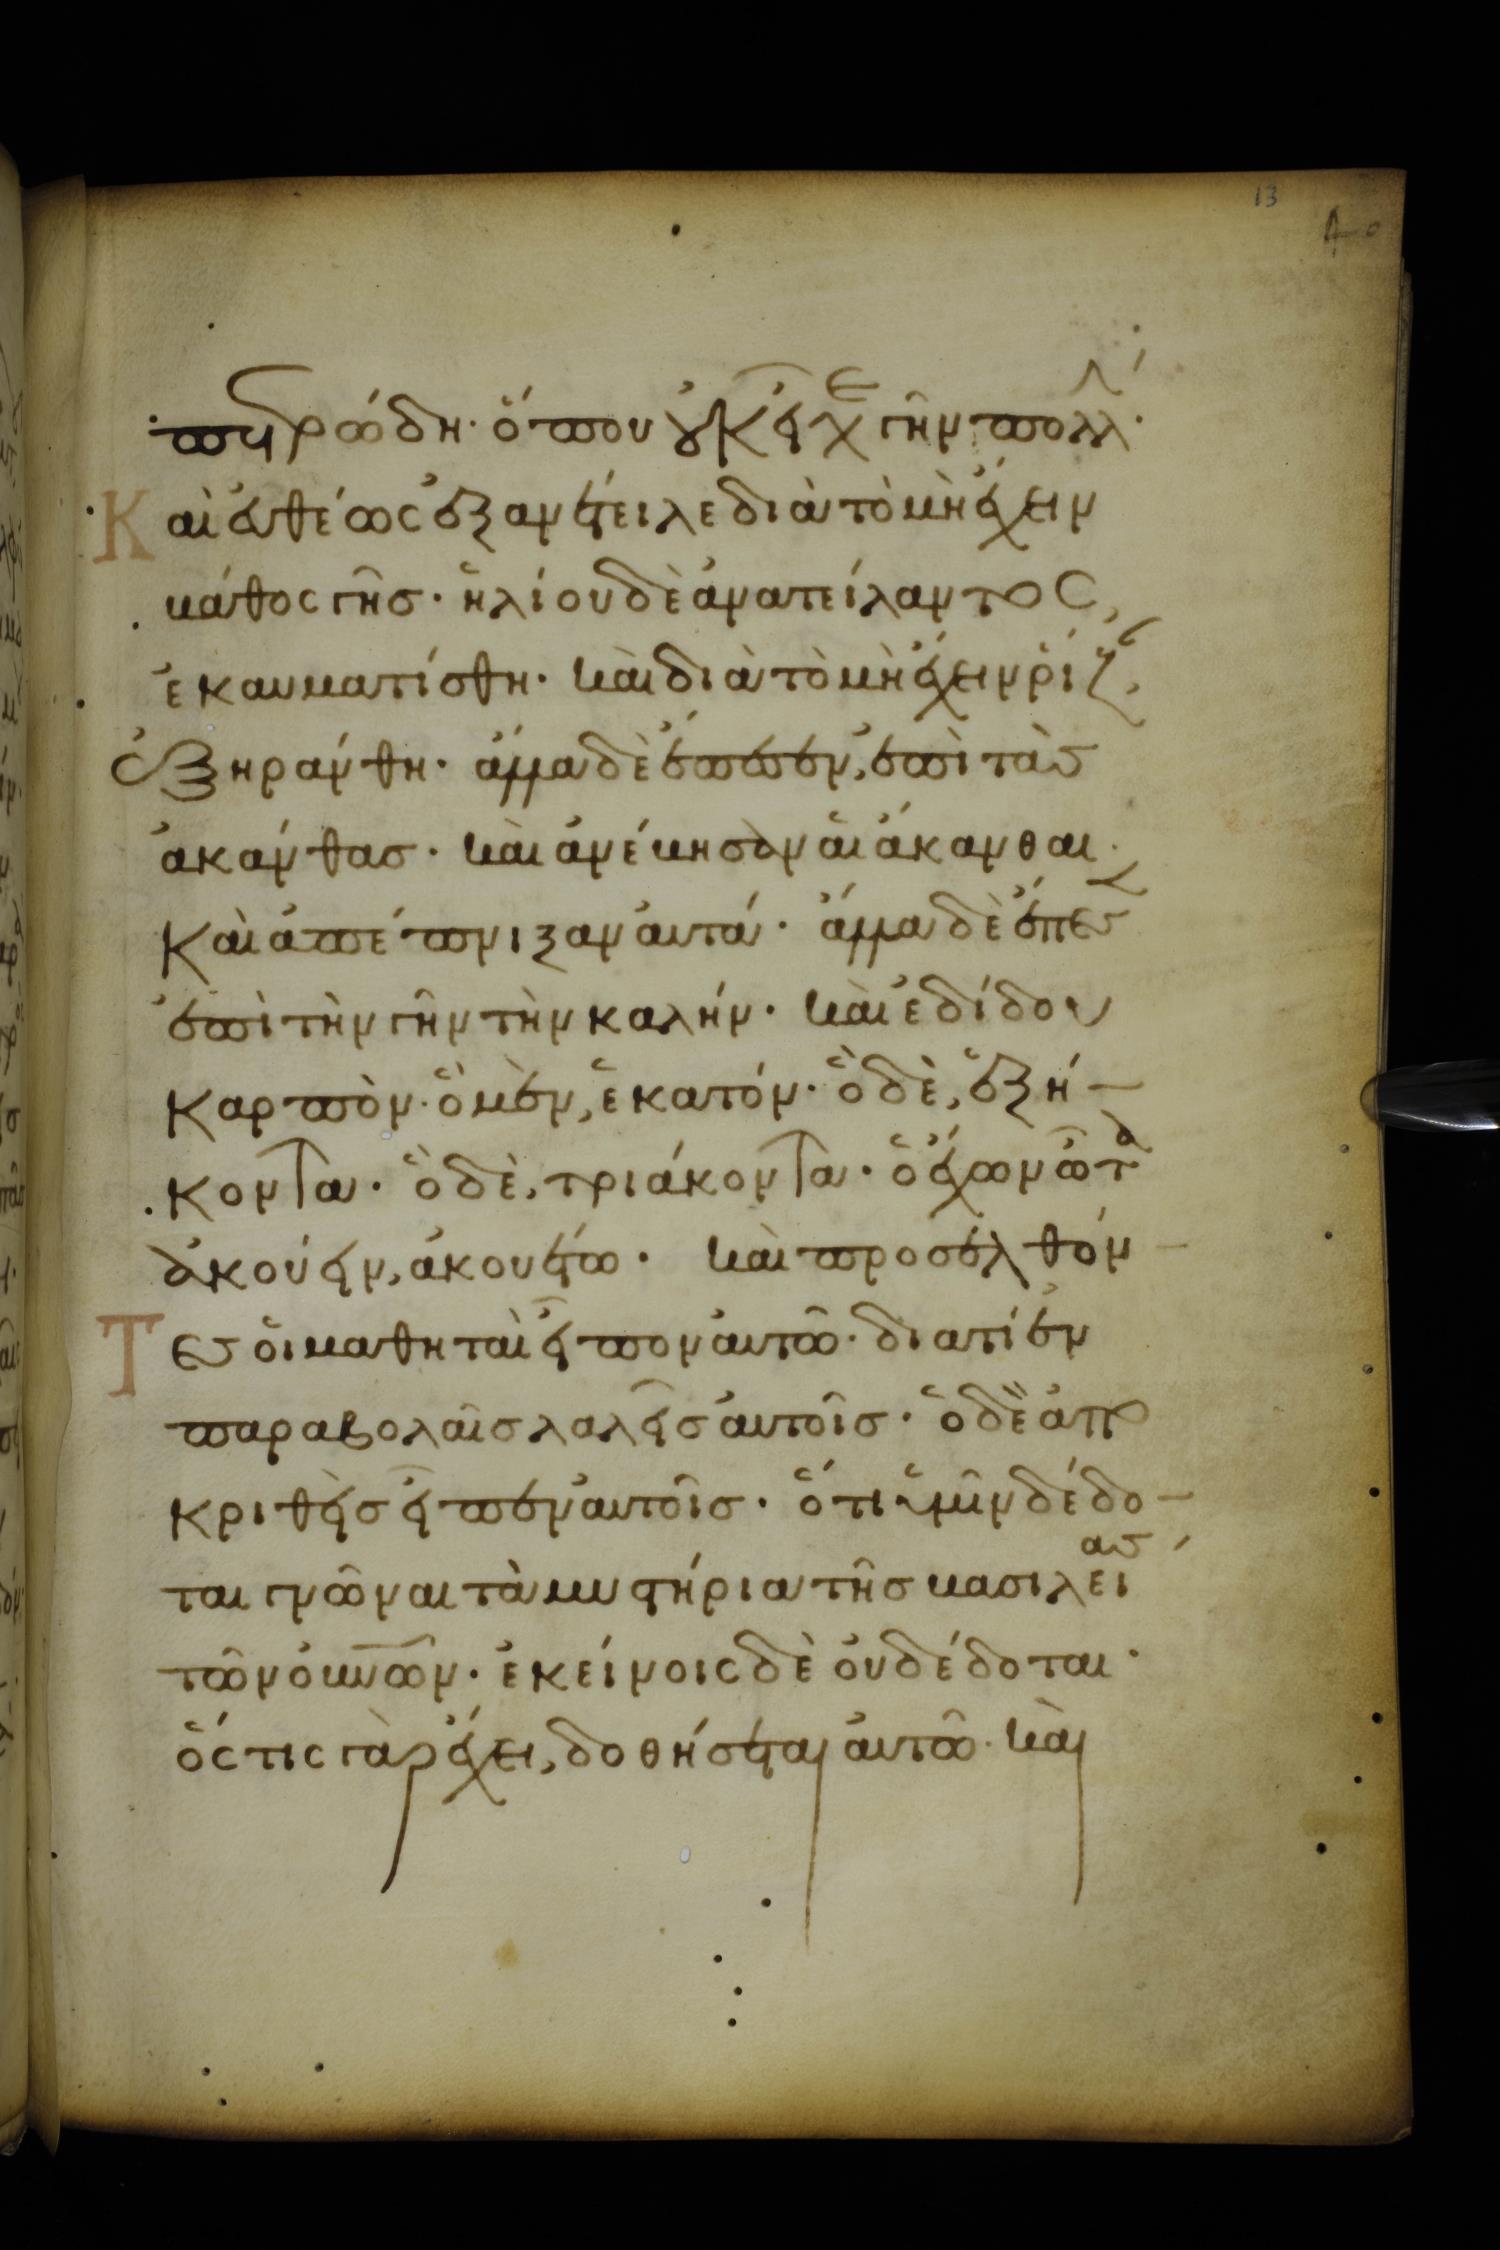 13
πετρώδη· ὅπου οὐκ εἶχε γῆν πολλ·
Καὶ εὐθέως ἐξανέτειλε διὰ τὸ μὴ ἔχειν
βάθος γῆσ· ἡλίου δὲ ἀνατείλαντος,
ἐκαυματίσθη· καὶ διὰ τὸ μὴ ἔχειν ῥίζ,
ἐξηράνθη· ἄλλα δὲ ἔπεσεν, ἐπὶ τὰς
ἀκάνθασ· καὶ ἀνέβησαν αἱ ἄκανθαι·
Καὶ ἀπέπνιξαν αὐτά· ἄλλα δὲ ἔπεσ
ἐπὶ τὴν γῆν τὴν καλήν· καὶ ἐδίδου
καρπὸν· ὃ μὲν, ἑκατόν· ὃ δὲ, ἑξή
κοντα· ὃ δὲ, τριάκοντα· ὁ ἔχων ὦτα
ἀκούειν, ἀκουέτω· καὶ προσελθόν
Τες οἱ μαθηταὶ εἶπον αὐτῶ· διατί ἐν
παραβολαῖσ λαλεῖσ αὐτοῖσ· ὁ δὲ ἀπο
κριθεὶσ εἶπεν αὐτοῖσ· ὅτι ὑμῖν δέδο
ται γνῶναι τὰ μυστήρια τῆσ βασιλείας
τῶν οὐνῶν· ἐκείνοις δὲ οὐ δέδοται·
ὅςτις γὰρ ἔχει, δοθήσεται αὐτῶ· καὶ